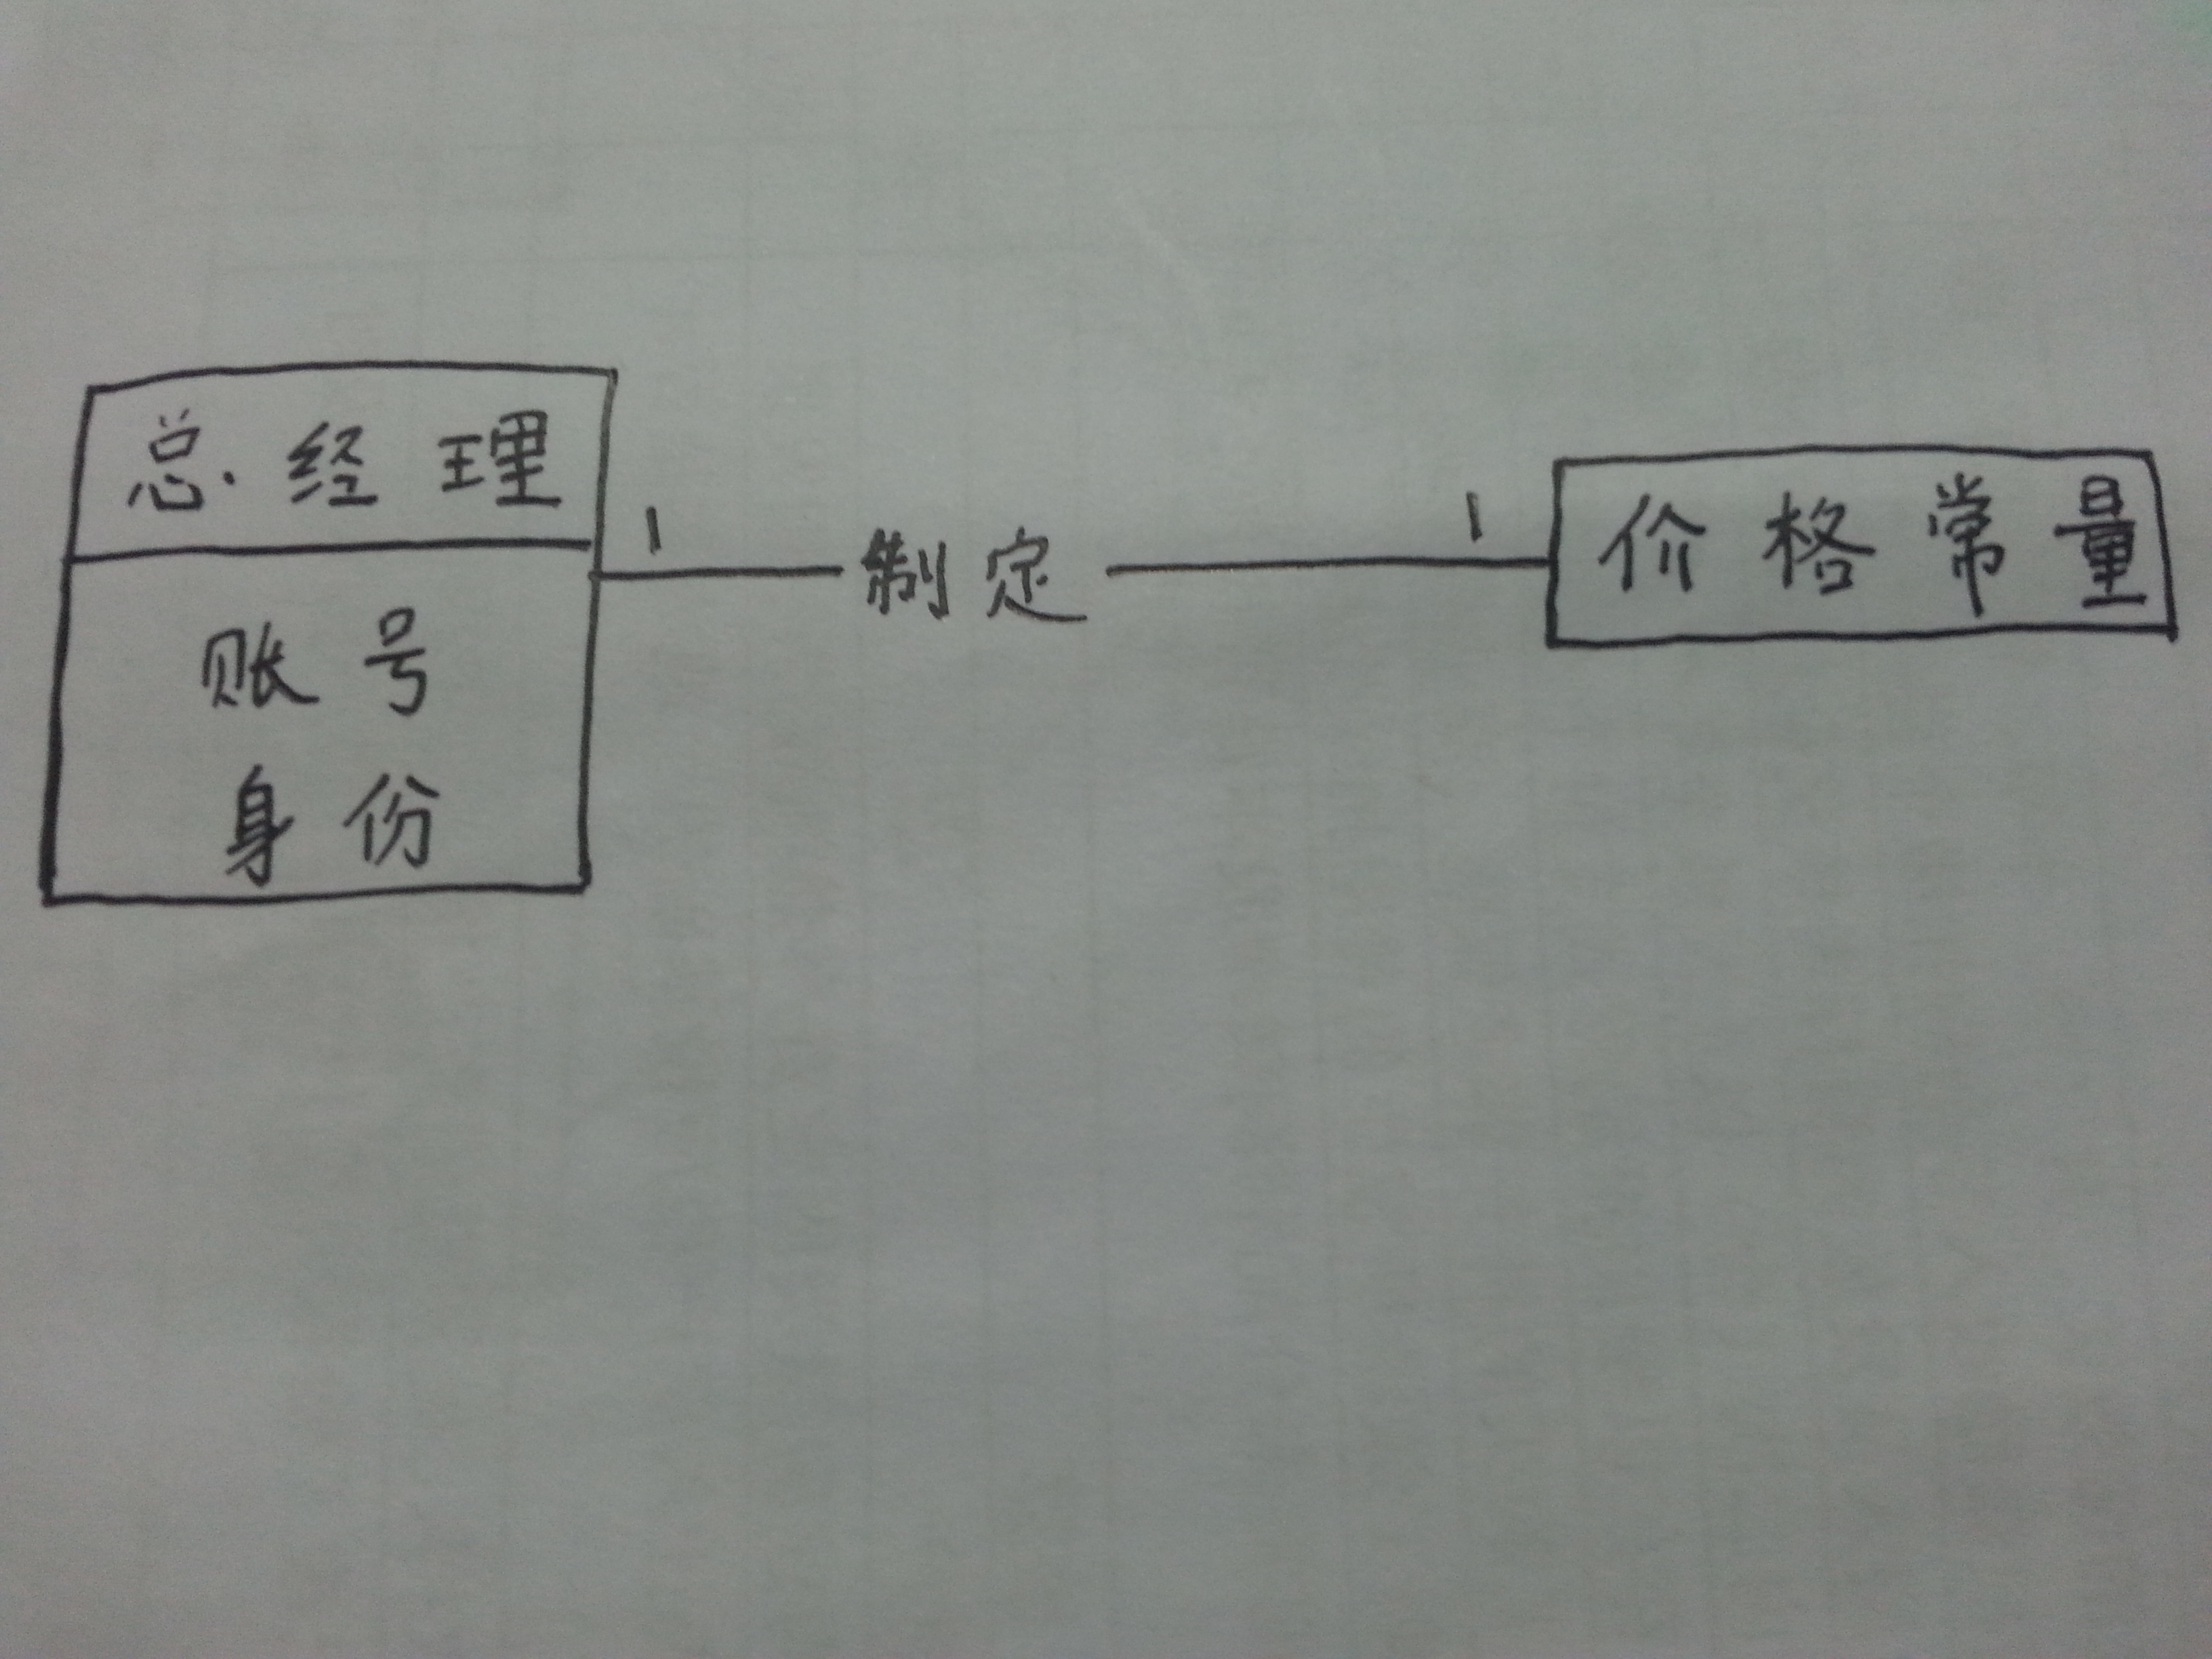 总经理
账号
身份
1 制定 1
价格常量